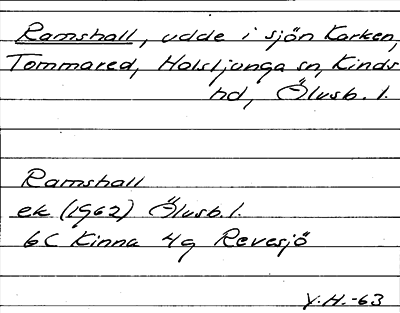 Ramshall, udde i sjön Karken,
Tommared, Holsljunga sn, Kinds
hd, Älvsb. l.
Ramshall
ek (1962) Älvsb. l.
6C Kinna 4g Revesjö
Y.H.-63